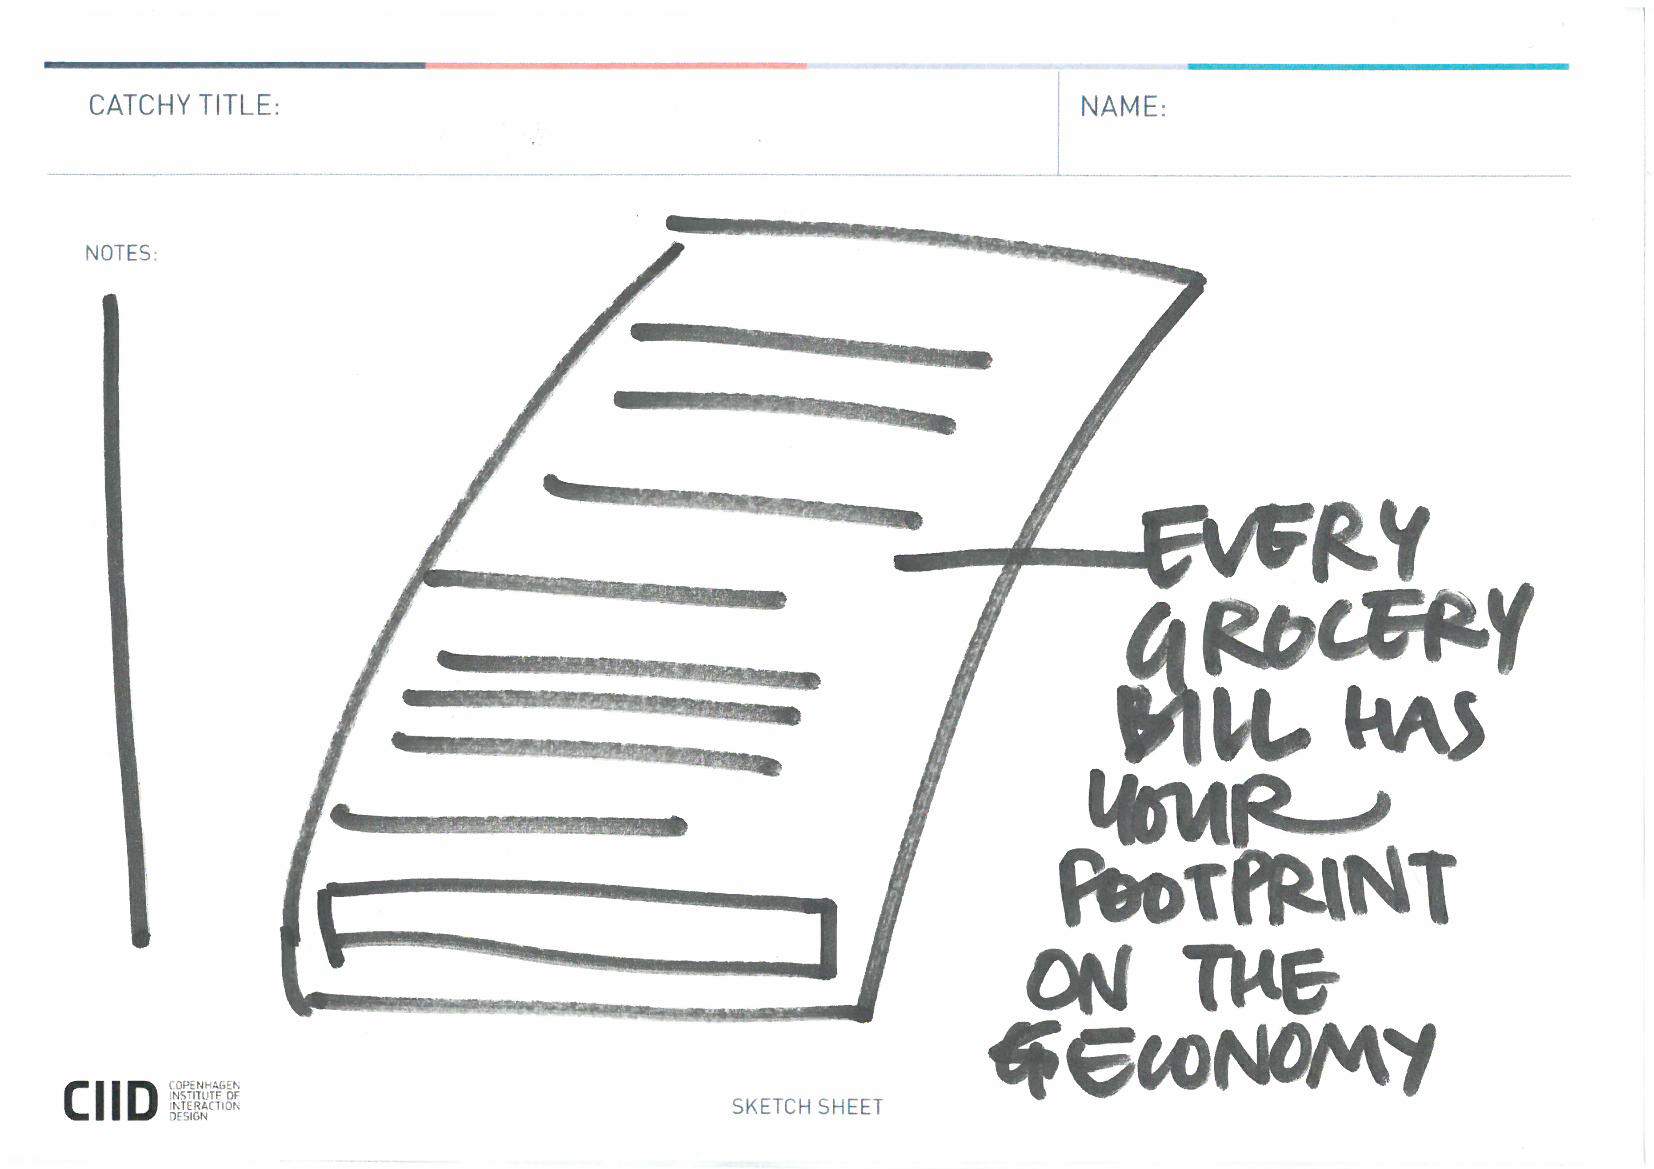 CATCHY TITLE:
NAME:
NOTES:
EVERY
GROCERY
BILL HAS
YOUR
FOOTPRINT
ON THE
ECONOMY
CIID
COPENHAGEN
INSTITUTE OF
INTERACTION
DESIGN
SKETCH SHEET